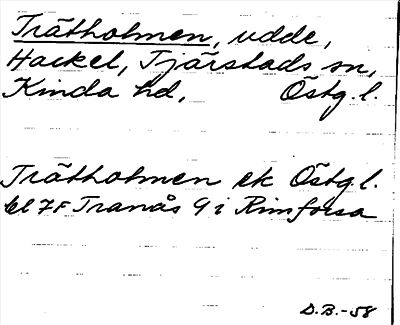 Trätholmen, udde,
Hackel, Tjärstads sn,
Kinda hd, Östg.l.
Trätholmen ek Östg.l.
bl 7F Tranås 9 i Rimforsa
D.B.-58